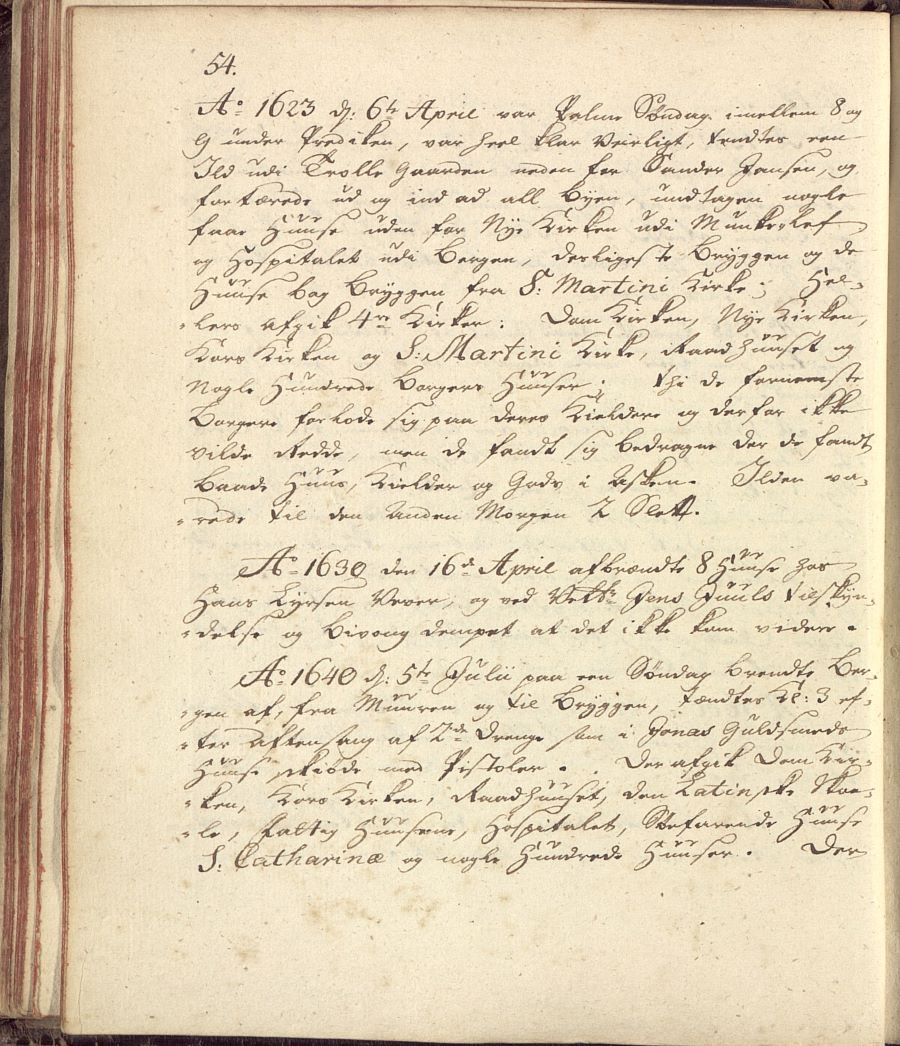 54.
Ao 1623 d: 6te April var Palme Søndag imellem 8 og
9 under Prediken, var heel klar Veirligt, tendtes een
Ild udi Trolle Gaarden neden for Sander Jansen, og
fortærede ud og ind ad all Byen, undtagen nogle
faae Huuse uden for Nye Kirken udi Munkelef
og Hospitalet udi Bergen, desligeste Bryggen og de
Huuse bag Bryggen fra S: Martini Kirke; Hel-
-lers afgik 4re Kirker: DomKirken, Nye Kirken,
KorsKirken og S: Martini Kirke, Raadhuuset og
Nogle Hundrede Borgers Huuser; thi de fornemste
Borgere forlode sig paa deres Kieldere og derfor ikke
vilde Redde, men de fandt sig bedragne der de fandt
baade Huus, Kielder og Gods i Asken. Ilden va-
-rede til den Anden Morgen 2 Slett.
Ao 1630 den 16de April afbrændte 8 Huuse hos
Hans Lyrsen Vever, og ved Jens Juuls tilskyn-
-delse og Bivong dempet at det ikke kom videre.
Ao 1640 d: 5te Julii paa een Søndag brendte Ber-
-gen af, fra Muuren og til Bryggen, tændtes Kl: 3 ef-
-ter Aftensang af 2de Drenge som i Jonas Guldsmeds
Huuse skiøde med Pistoler. Der afgik DomKir-
-ken, KorsKirken, Raadhuuset, den Latinske Skoe-
-le, Fattig Huusene, Hospitalet, Huuse
S: Catharinæ og nogle Hundrede Huuser. Der